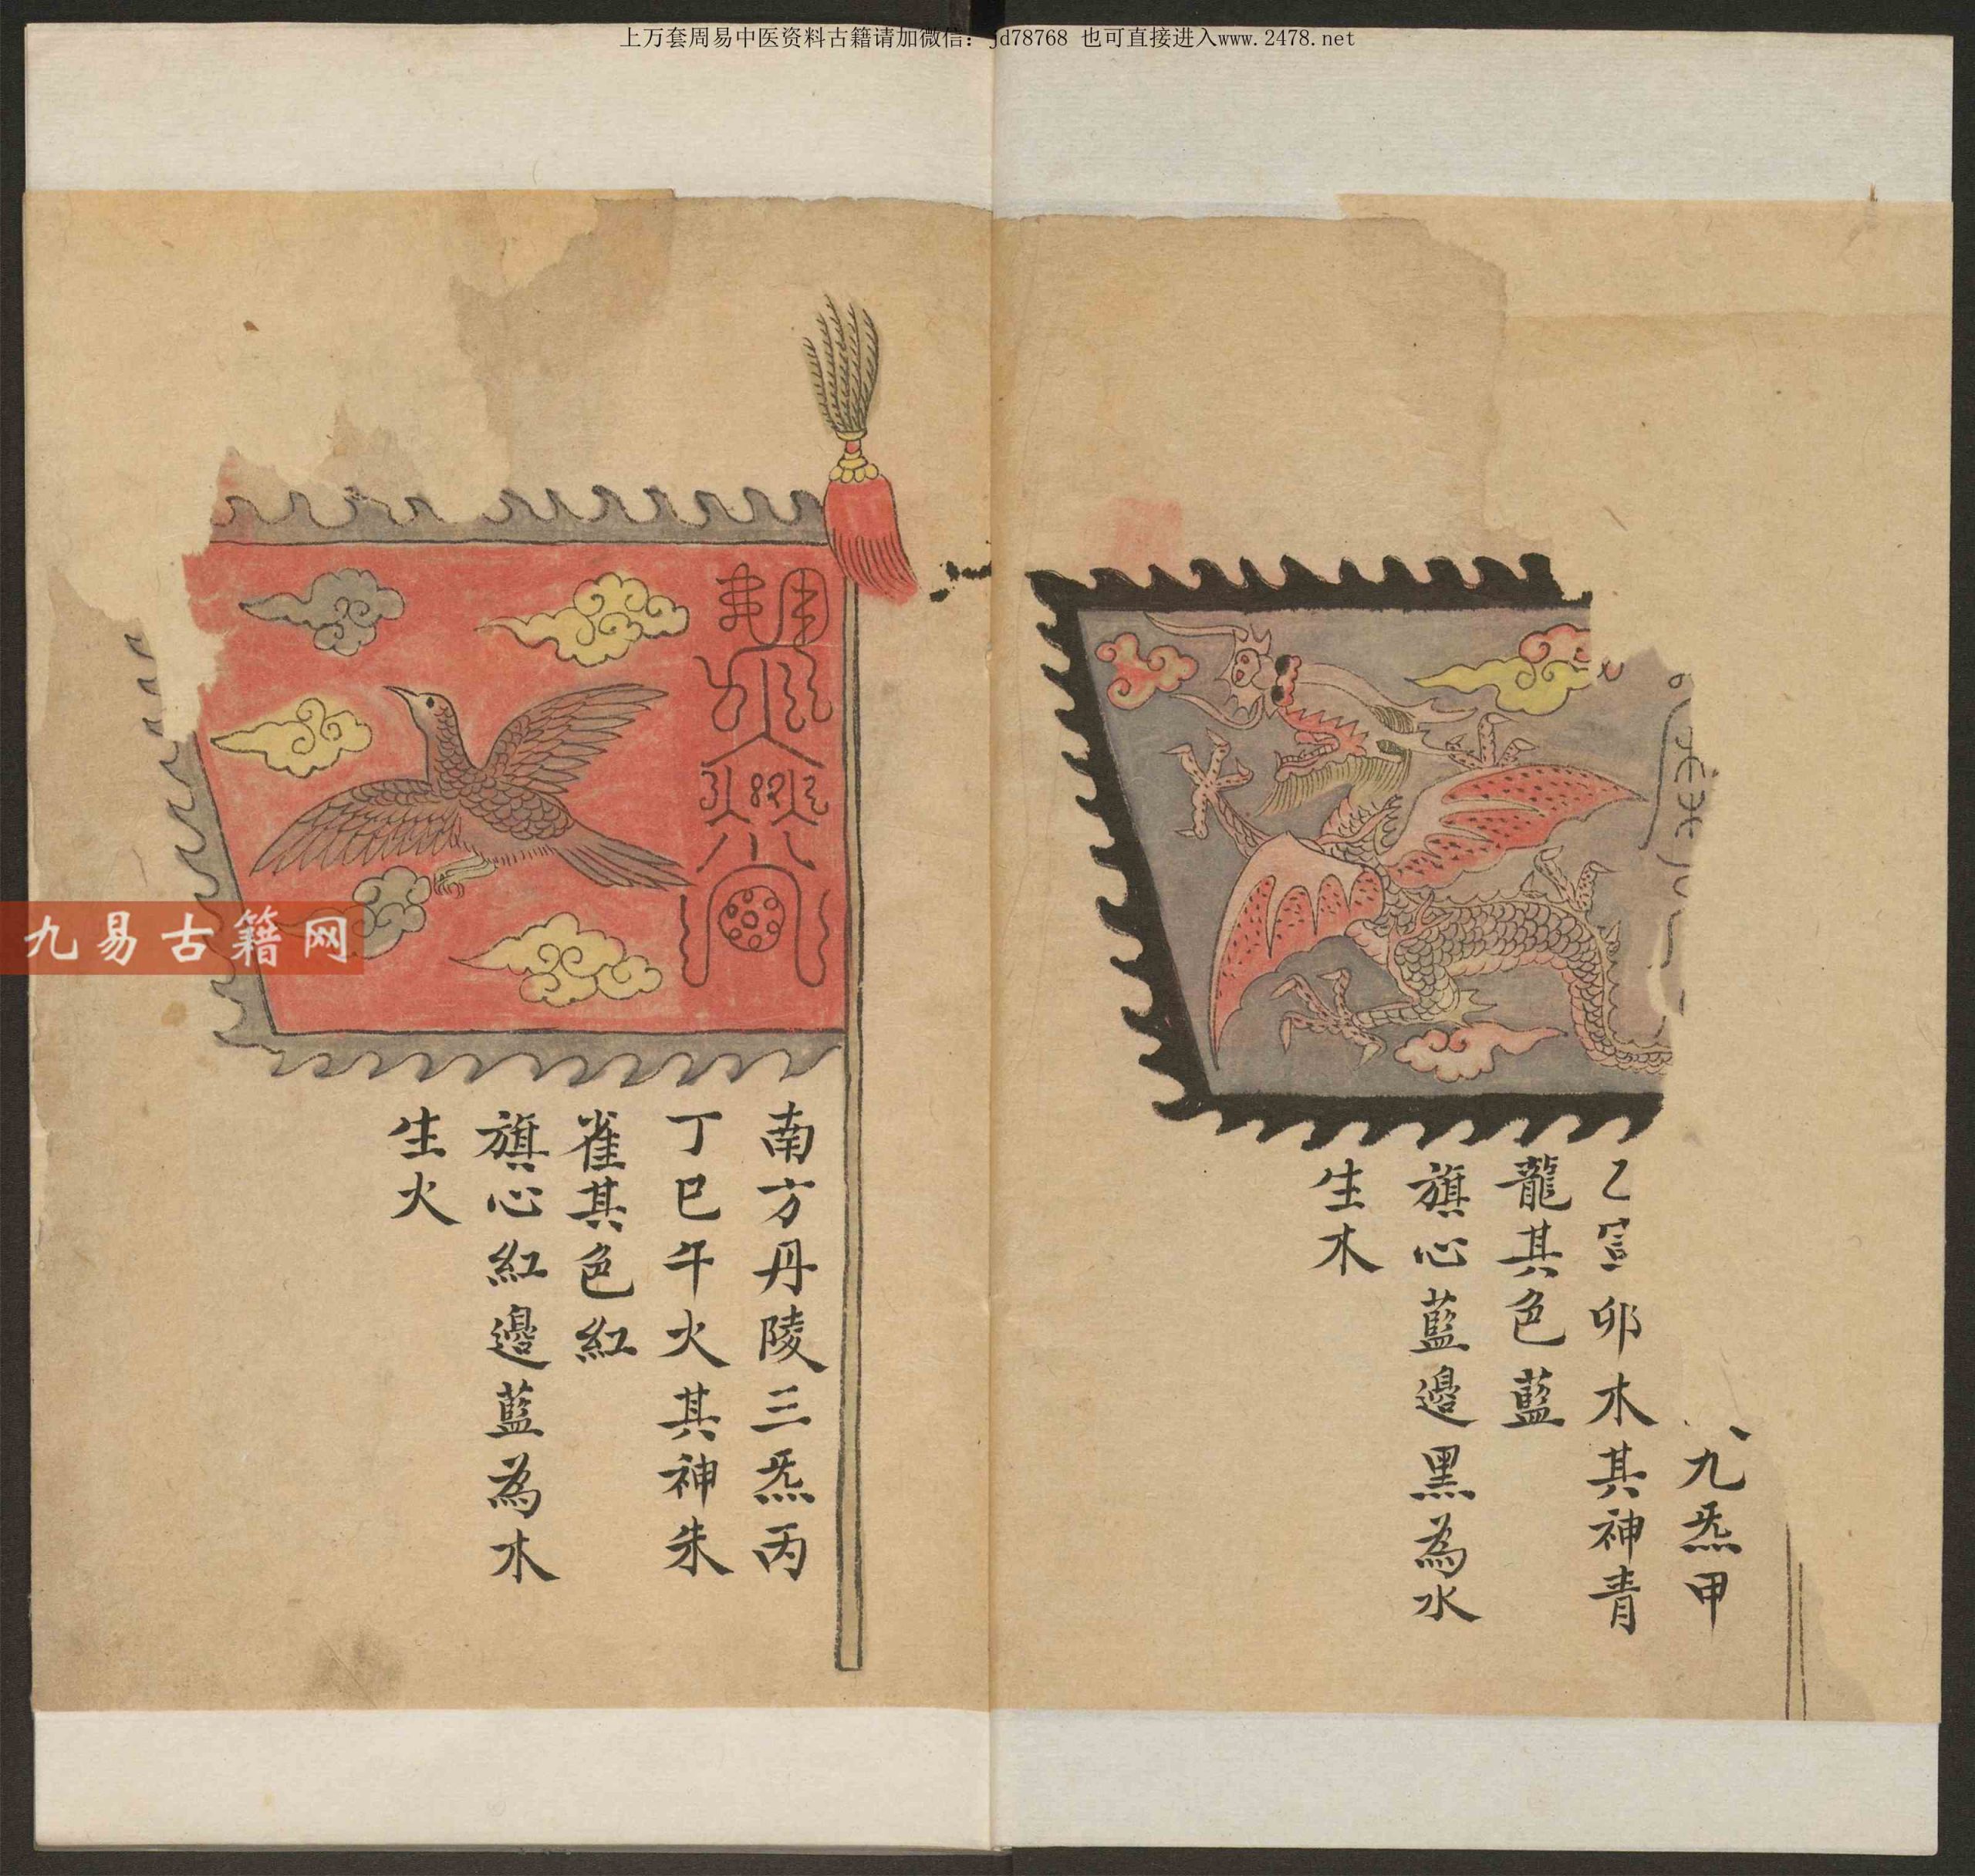 上万套周易中医资料古籍请加微信：jd78768 也可直接进入www.2478.net
九炁甲
乙寅卯木其神青
龍其色藍
旗心藍邊黑為水
生木
南方丹陵三炁丙
丁巳午火其神朱
雀其色紅
旗心紅邊藍為木
生火
九易古籍网